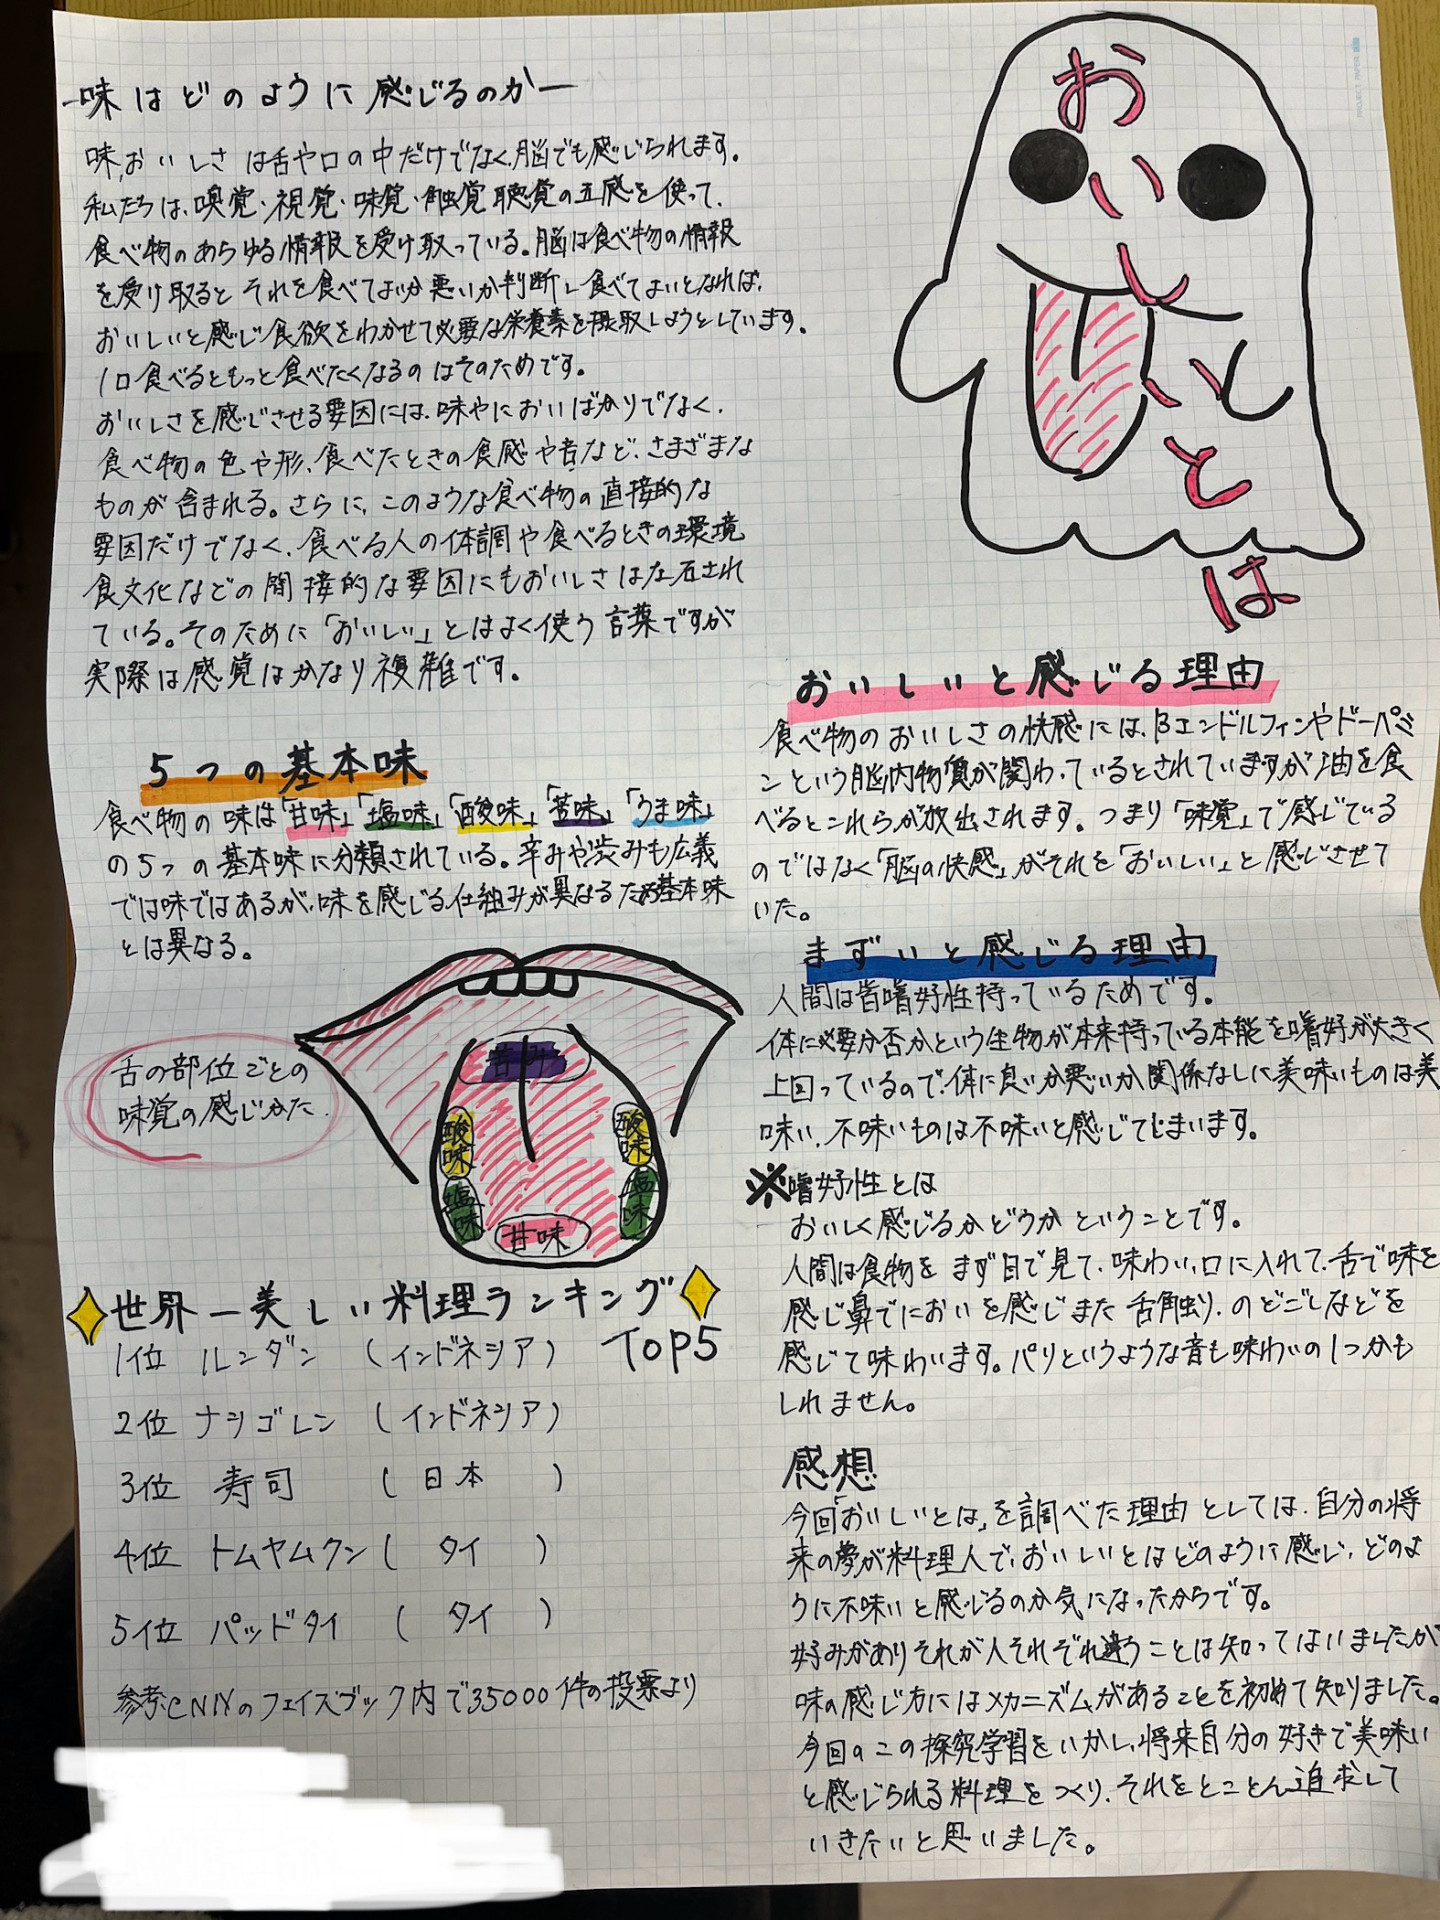 おいしいとは
ー味はどのように感じるのかー
味,おいしさは舌や口の中だけでなく、脳でも感じられます。
私たちは、嗅覚・視覚・味覚・触覚聴覚の五感を使って、
食べ物のあらゆる情報を受け取っている。脳は食べ物の情報
を受け取るとそれを食べてよいか悪いか判断し食べてよいとなれば、
おいしいと感じ食欲をわかせて必要な栄養素を摂取しようとしています。
1口食べるともっと食べたくなるのはそのためです。
おいしさを感じさせる要因には、味やにおいばかりでなく、
食べ物の色や形、食べたときの食感や音など、さまざまな
ものが含まれる。さらに、このような食べ物の直接的な
要因だけでなく、食べる人の体調や食べるときの環境
食文化などの間接的な要因にもおいしさは左右され
ている。そのために「おいしい」とはよく使う言葉ですが
実際は感覚はかなり複雑です。
5つの基本味
食べ物の味は「甘味」「塩味」「酸味」「苦味」「うま味」
の5つの基本味に分類されている。辛みや渋みも広義
では味ではあるが、味を感じる仕組みが異なるため基本味
とは異なる。
舌の部位ごとの
味覚の感じかた
酸味
酸味
塩味
塩味
甘味
世界一美しい料理ランキング
TOP5
1位 ルンダン (インドネシア)
2位 ナシゴレン (インドネシア)
3位 寿司 (日本)
4位 トムヤムクン(タイ)
5位 パッドタイ (タイ)
参考:CNNのフェイスブック内で35000件の投票より
おいしいと感じる理由
食べ物のおいしさの快感には、βエンドルフィンやドーパミ
ンという脳内物質が関わっているとされていますが油を食
べるとこれらが放出されます。つまり「味覚」で感じている
のではなく「脳の快感」がそれを「おいしい」と感じさせて
いた。
まずいと感じる理由
人間は皆嗜好性持っているためです。
体に必要か否かという生物が本来持っている本能を嗜好が大きく
上回っているので、体に良いか悪いか関係なしに美味いものは美
味い、不味いものは不味いと感じてしまいます。
※嗜好性とは
おいしく感じるかどうかということです。
人間は食物をまず目で見て、味わい、口に入れて、舌で味を
感じ鼻でにおいを感じまた舌触り、のどごしなどを
感じて味わいます。パリというような音も味わいの1つかも
しれません。
感想
今回「おいしいとは」を調べた理由としては、自分の将
来の夢が料理人で、おいしいとはどのように感じ、どのよ
うに不味いと感じるのか気になったからです。
好みがありそれが人それぞれ違うことは知ってはいましたが
味の感じ方にはメカニズムがあることを初めて知りました。
今回のこの探究学習をいかし、将来自分の好きで美味い
と感じられる料理をつくり、それをとことん追求して
いきたいと思いました。